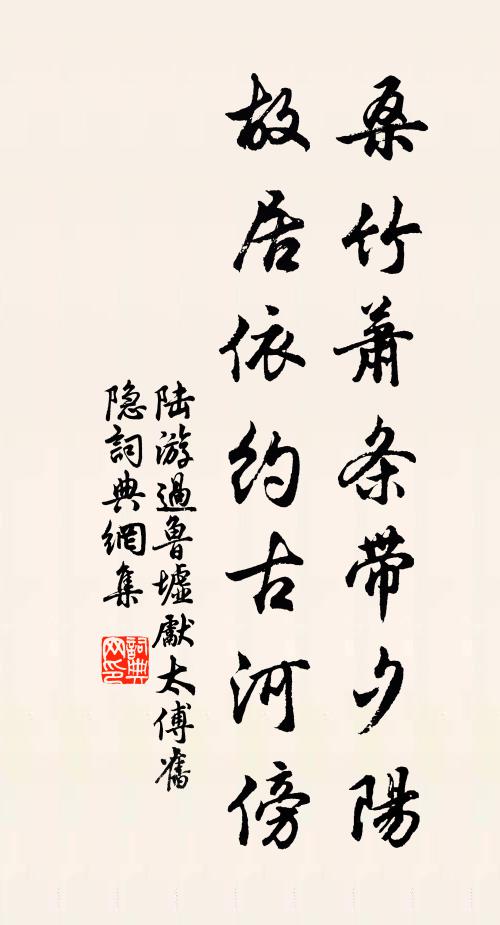 桑竹蕭条帶夕陽
故居依約古河傍
陆游過魯墟獻太傅舊
隐詞典網集
詞典
网印